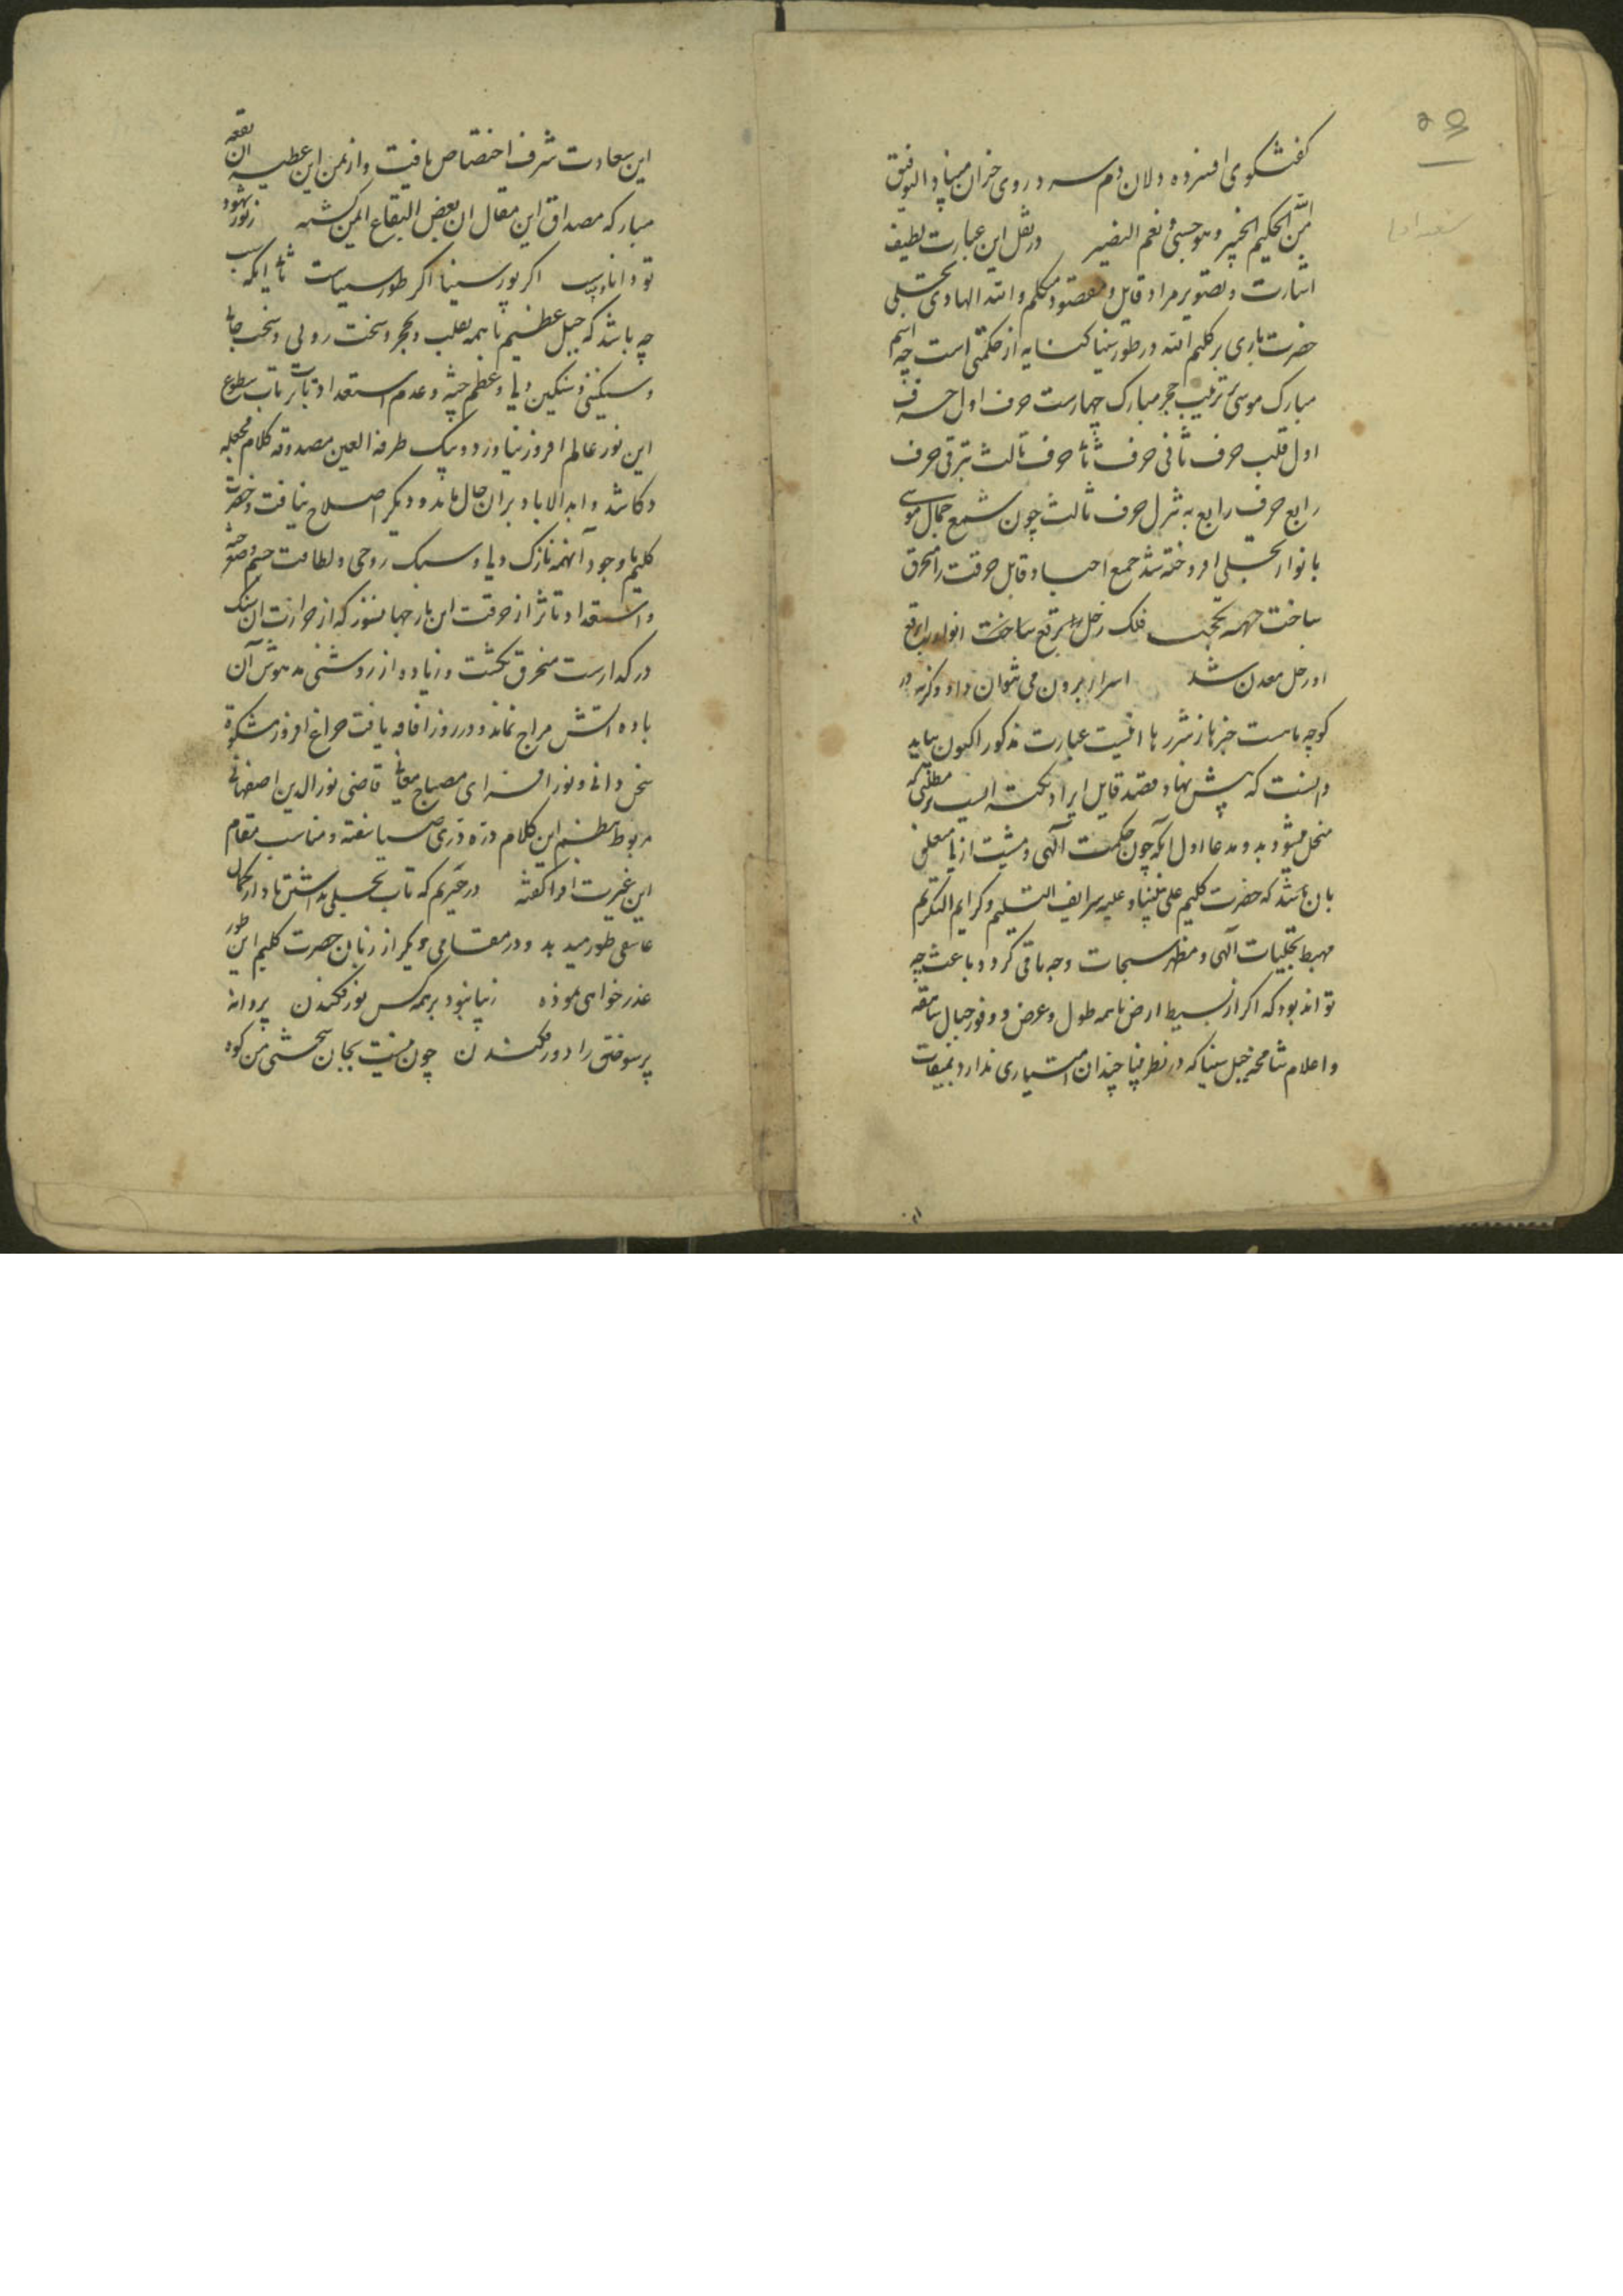 گفتگوی افسرده دلان دم سرد روی خزان مبیناد و التوفیق
من الله الحکیم الخبیر و هو حسبی و نعم النصیر در نقل این عبارت لطیف
اشارت و تصویر مراد قایل و مقصود متکلم و الله الهادی تجلی
حضرت باری بر کلیم الله در طور سینا کنایه از حکمتی است چه اسم
مبارک موسی ترتیب حجر مبارک چهارست حرف اول حرف
اول قلب حرف ثانی حرف ثا حرف ثالث بترقی حرف
رابع حرف رابع به تنزل حرف ثالث چون شمع جمال موسی
بانوار تجلی افروخته شد جمع اجساد قابل حرقت را محرق
ساخت فلک زحل را برقع ساخت
او رحل معدن شد اسرار برون می نتوان داد و گرنه در
کوچه ماست خبرها ز شررها انیست عبارت مذکور اکنون بباید
دانست که پیش نهاد و قصد قایل ایراد نکته ایست مطلبی که
منحل میشود بدو مدعا اول آنکه چون حکمت آلهی و مشیت ازلی متعلق
بان شد که حضرت کلیم علی نبینا و علیه شرایف التسلیم و کرایم التکریم
مهبط تجلیات آلهی و مظهر سبحات وجه باقی گردد باعث چه
تواند بود که اگر از بسیط ارض با همه طول و عرض و وفور جبال شاهقه
و اعلام شامخه جبل سینا که در نظر بینا چندان امتیازی ندارد بمیقات
این سعادت شرف اختصاص یافت و از یمن این عطیه ان بقعه
مبارکه مصداق این مقال ان بعض البقاع ایمن گشته ز نور شهود
تو دانا دلیست اگر پور سینا اگر طور سیناست ثا آنکه سبب
چه باشد که جبل عظیم با همه تصلب و تحجر و سخت رویی و سخت جانی
و سنگینی و سنگین دلی و عظم جثه و عدم استعداد تاثر تاب سطوع
این نور عالم افروز نیاورد و بیک طرفة العین مصدوقه کلام فجعله
دکا شد و ابد الاباد بران حال ماند و دیگر اصلاح نیافت و حضرت
کلیم با وجود آنهمه نازک دلی و سبک روحی و لطافت جسم و صغر جثه
و استعداد تاثر از حرقت این نار جهانسوز که از حرارت ان سنگ
در گدازست منحرق نگشت و زیاده از روشنی مدهوش آن
باده اتش مزاج نماند و در روز افاقه یافت چراغ افروز مشکوة
سخن دانی و نور افزای مصباح معانی قاضی نور الدین اصفهانی
مربوط بنظم این کلام دره دری صبا سفته و مناسب مقام
این غیرت افزا گفته در حیرتم که تاب تجلی نداشتن
عاشقی طور میدید و در مقامی دیگر از زبان حضرت کلیم این طور
عذر خواهی نموده زیبا نبود بر همه کس نور فکندن پروانه
پر سوختن را دور فکندن چون نیست بجان سختی من کوه